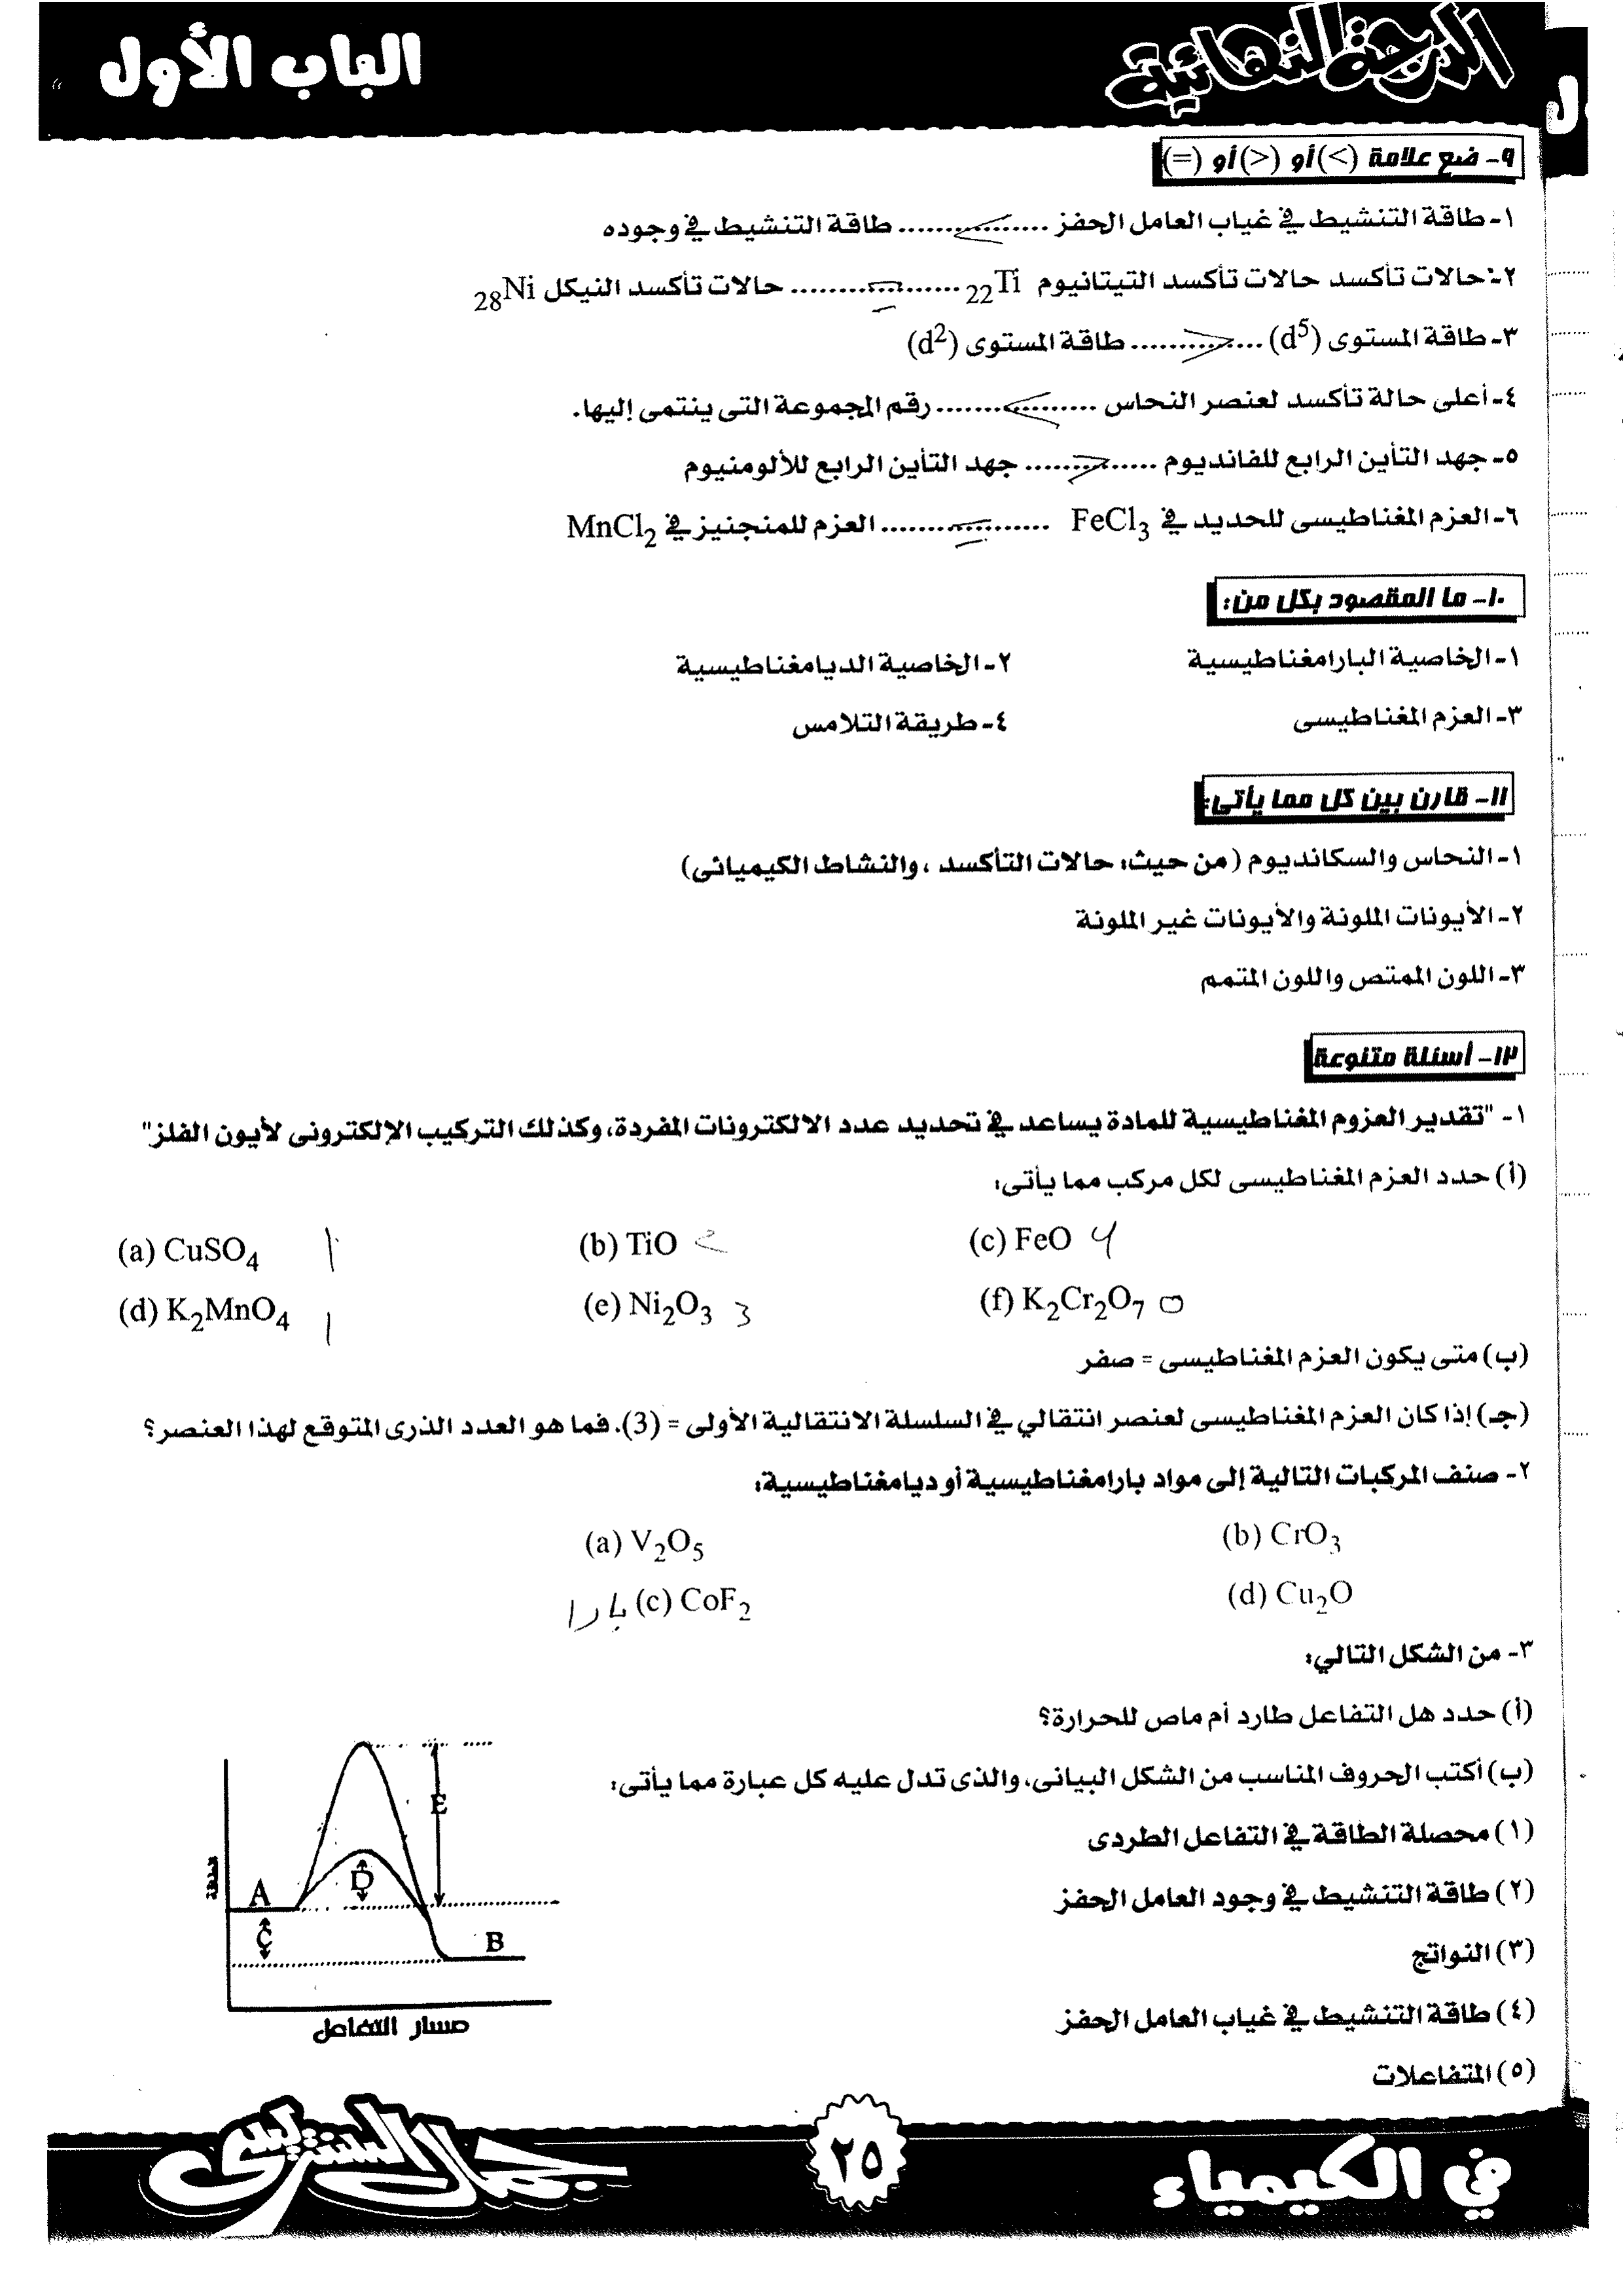 الدرجة النهائية
الباب الأول
٩- ضع علامة (>) أو (<) أو (=)
١- طاقة التنشيط في غياب العامل الحفز .................. طاقة التنشيط في وجوده
٢- حالات تأكسد حالات تأكسد التيتانيوم 22Ti .................. حالات تأكسد النيكل 28Ni
٣- طاقة المستوى (d5) .................. طاقة المستوى (d2)
٤- أعلى حالة تأكسد لعنصر النحاس .................. رقم المجموعة التى ينتمى إليها.
٥- جهد التأين الرابع للفانديوم .................. جهد التأين الرابع للألومنيوم
٦- العزم المغناطيسى للحديد في FeCl3 .................. العزم للمنجنيز في MnCl2
١٠- ما المقصود بكل من:
١- الخاصية البارامغناطيسية ٢- الخاصية الديامغناطيسية
٣- العزم المغناطيسى ٤- طريقة التلامس
١١- قارن بين كل مما يأتى:
١- النحاس والسكانديوم (من حيث: حالات التأكسد ، والنشاط الكيميائى)
٢- الأيونات الملونة والأيونات غير الملونة
٣- اللون الممتص واللون المتمم
١٢- أسئلة متنوعة
١- "تقدير العزوم المغناطيسية للمادة يساعد في تحديد عدد الالكترونات المفردة، وكذلك التركيب الإلكترونى لأيون الفلز"
(أ) حدد العزم المغناطيسى لكل مركب مما يأتى:
(a) CuSO4 ١ (b) TiO (c) FeO 4
(d) K2MnO4 ١ (e) Ni2O3 3 (f) K2Cr2O7 0
(ب) متى يكون العزم المغناطيسى = صفر
(جـ) إذا كان العزم المغناطيسى لعنصر انتقالي في السلسلة الانتقالية الأولى = (3). فما هو العدد الذرى المتوقع لهذا العنصر؟
٢- صنف المركبات التالية إلى مواد بارامغناطيسية أو ديامغناطيسية:
(a) V2O5 (b) CrO3
بارا (c) CoF2 (d) Cu2O
٣- من الشكل التالي:
(أ) حدد هل التفاعل طارد أم ماص للحرارة؟
(ب) أكتب الحروف المناسب من الشكل البيانى، والذى تدل عليه كل عبارة مما يأتى:
(١) محصلة الطاقة في التفاعل الطردى
(٢) طاقة التنشيط في وجود العامل الحفز
(٣) النواتج
(٤) طاقة التنشيط في غياب العامل الحفز
(٥) المتفاعلات
E
D
A
C
B
مسار التفاعل
في الكيمياء
٢٥
جمال السنتريسى